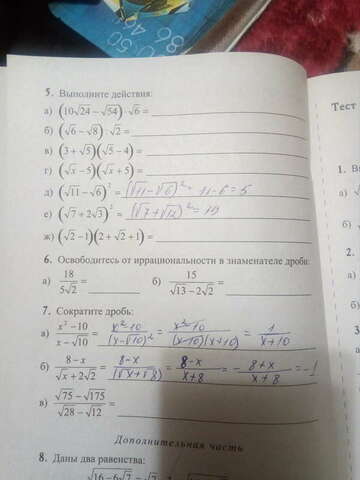 50
98
5. Выполните действия:
а) (10√24 − √54) · √6 =
б) (√6 − √8) · √2 =
в) (3 + √5)(√5 − 4) =
г) (√x − 5)(√x + 5) =
д) (√11 − √6)² = (√11 − √6)² = 11 − 6 = 5
е) (√7 + 2√3)² = (√7 + √12)² = 19
ж) (√2 − 1)(2 + √2 + 1) =
6. Освободитесь от иррациональности в знаменателе дроби:
а) 18/5√2 = б) 15/√13 − 2√2 =
7. Сократите дробь:
а) x² − 10/x − √10 = x² 10/(x − √10)² = x² − 10/(x − 10)(x + 10) = 1/x + 10
б) 8 − x/√x + 2√2 = 8 − x/(√x + √8) = 8 − x/x + 8 = − 8 + x/x + 8 = −1
в) √75 − √175/√28 − √12 =
Дополнительная часть
8. Даны два равенства:
Тест
1.
а)
б)
2.
а)